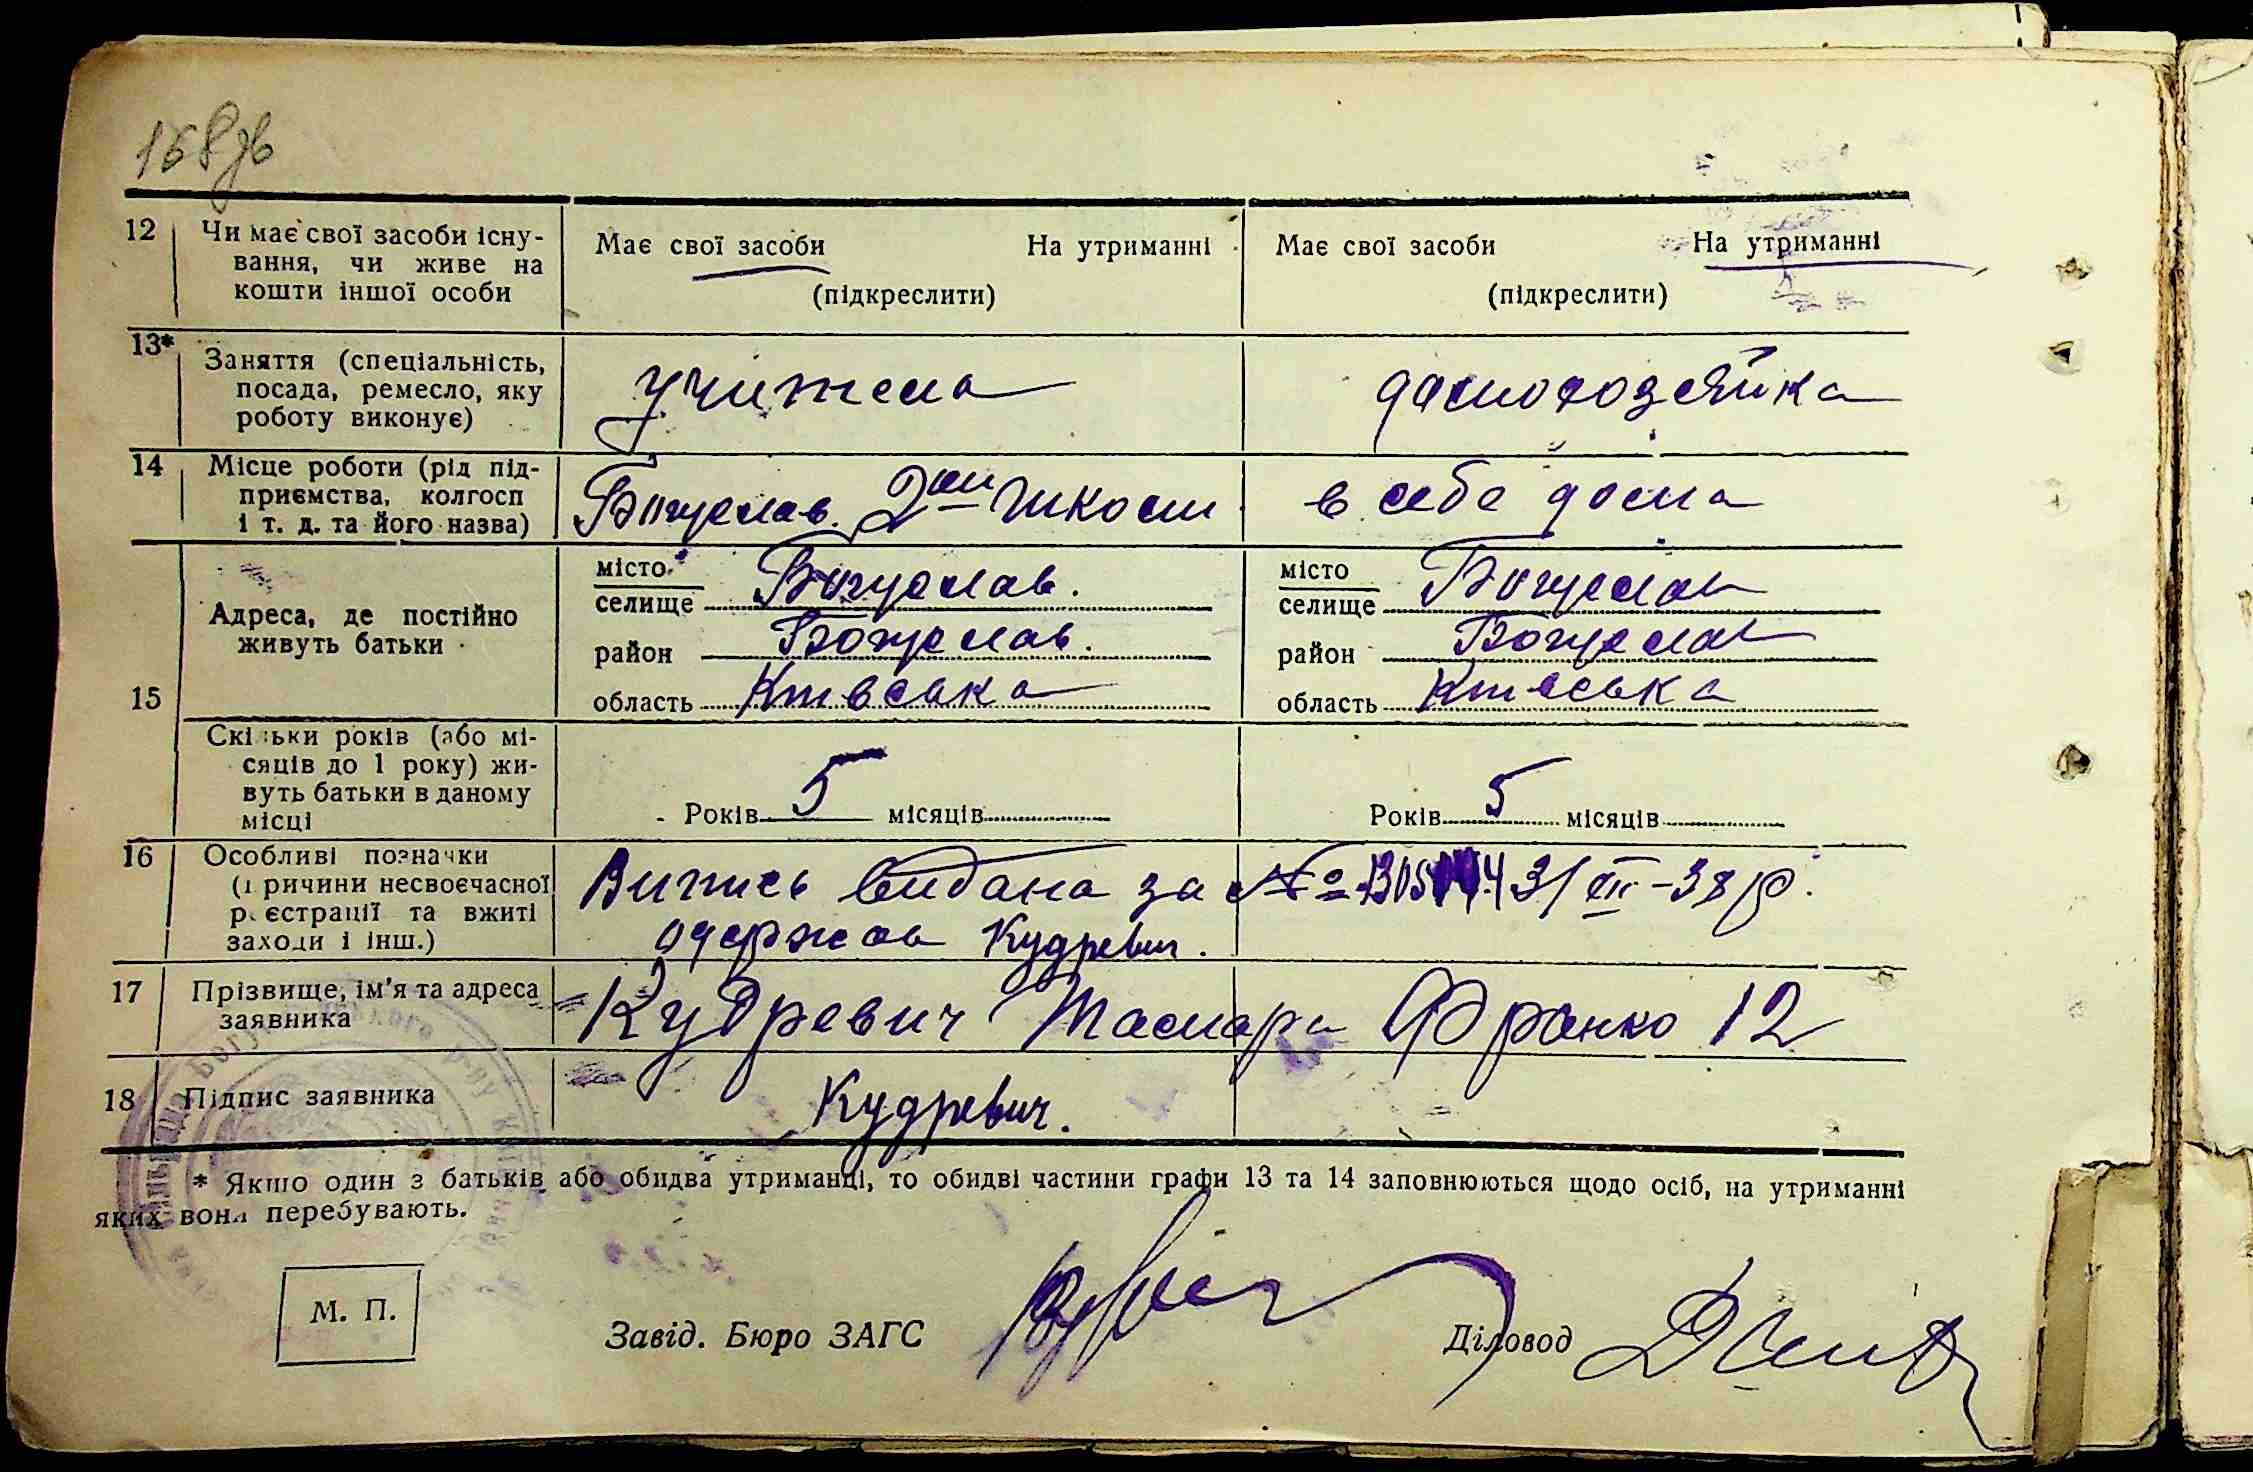 168зв
12 Чи має свої засоби існу-
вання, чи живе на
кошти іншої особи
Має свої засоби На утриманні
(підкреслити)
Має свої засоби На утриманні
(підкреслити)
13* Заняття (спеціальність,
посада, ремесло, яку
роботу виконує)
учитела
домохозяйка
14 Місце роботи (рід під-
приємства, колгосп
і т. д. та його назва)
Богуслав. 2ой школи
в себе дома
15 Адреса, де постійно
живуть батьки
місто
селище Богуслав.
район Богуслав.
область Київська
місто
селище Богуслав
район Богуслав
область Київська
Скільки років (або мі-
сяців до 1 року) жи-
вуть батьки в даному
місці
Років 5 місяців
Років 5 місяців
16 Особливі позначки
(причини несвоєчасної
реєстрації та вжиті
заходи і інш.)
Випись видана за № 31/III-38 р.
одержала Кудревич.
17 Прізвище, ім'я та адреса
заявника
Кудревич Тамара Франко 12
18 Підпис заявника
Кудревич.
* Якшо один з батьків або обидва утриманці, то обидві частини графи 13 та 14 заповнюються щодо осіб, на утриманні
яких вони перебувають.
М. П.
Завід. Бюро ЗАГС
Діловод